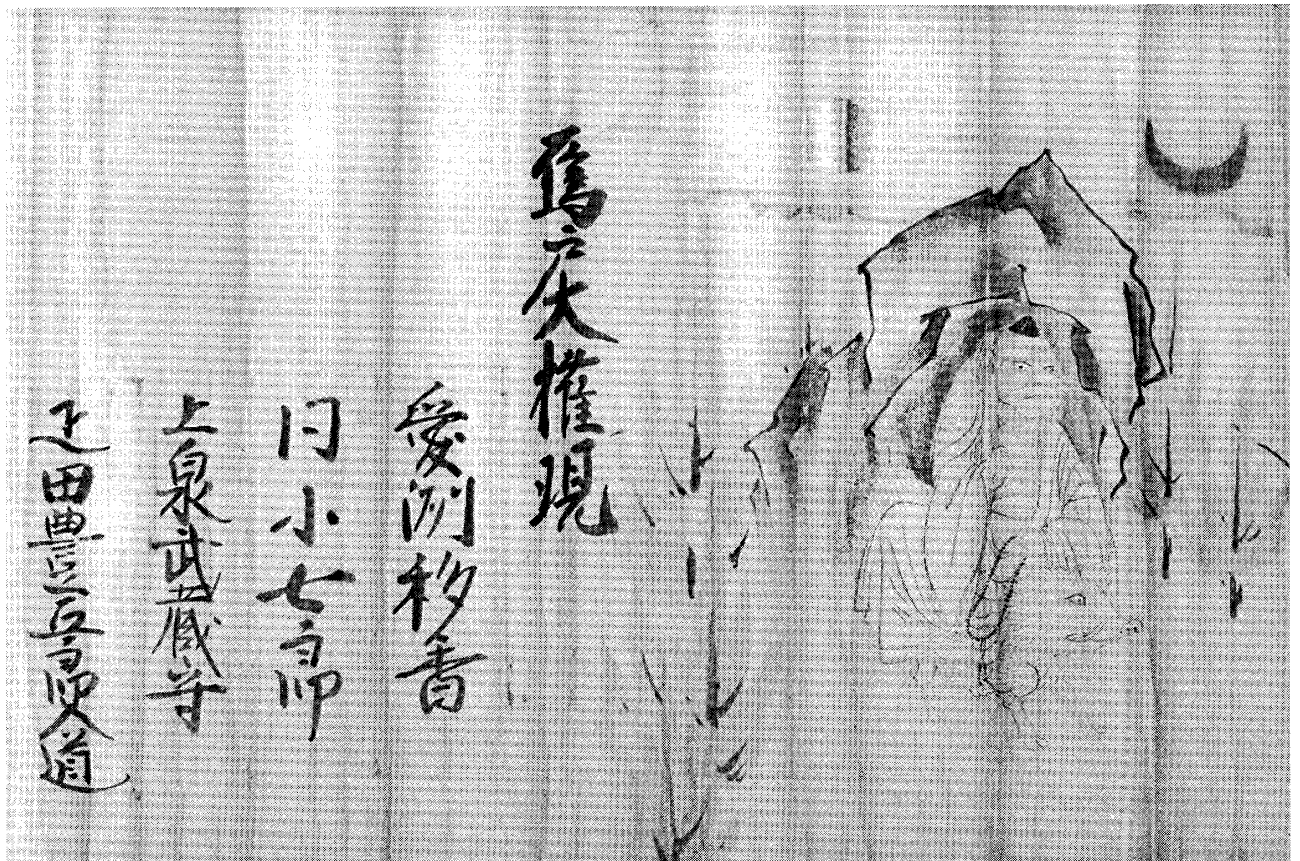 鵜戸大權現
愛洲移香
同小七郎
上泉武蔵守
疋田豊五郎入道